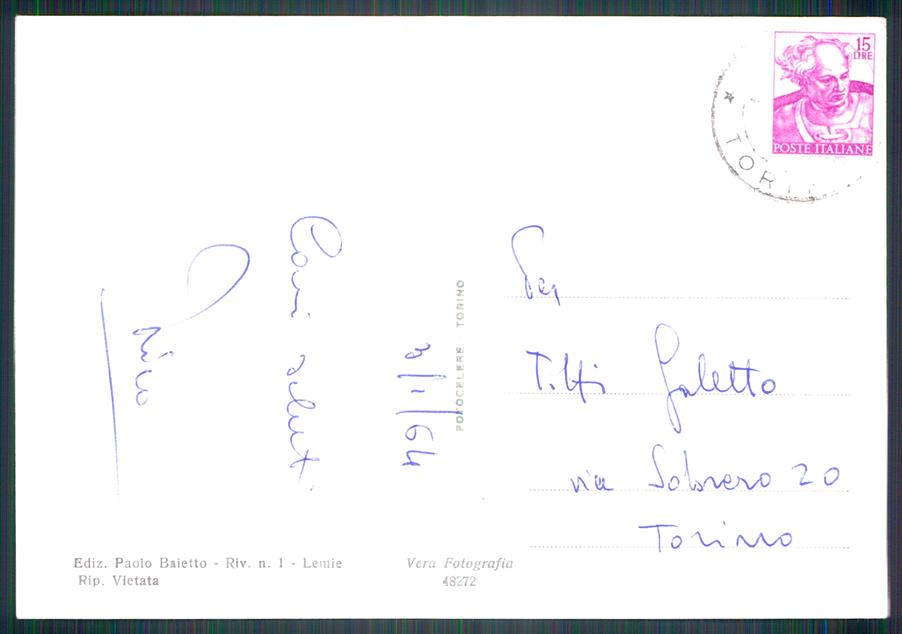 15
LIRE
POSTE ITALIANE
TORI
3/11/64
Cari saluti
FOTOCELERE TORINO
Galetto
via Sobrero 20
Torino
Ediz. Paolo Baietto - Riv. n. 1 - Lemie
Rip. Vietata
Vera Fotografia
48272